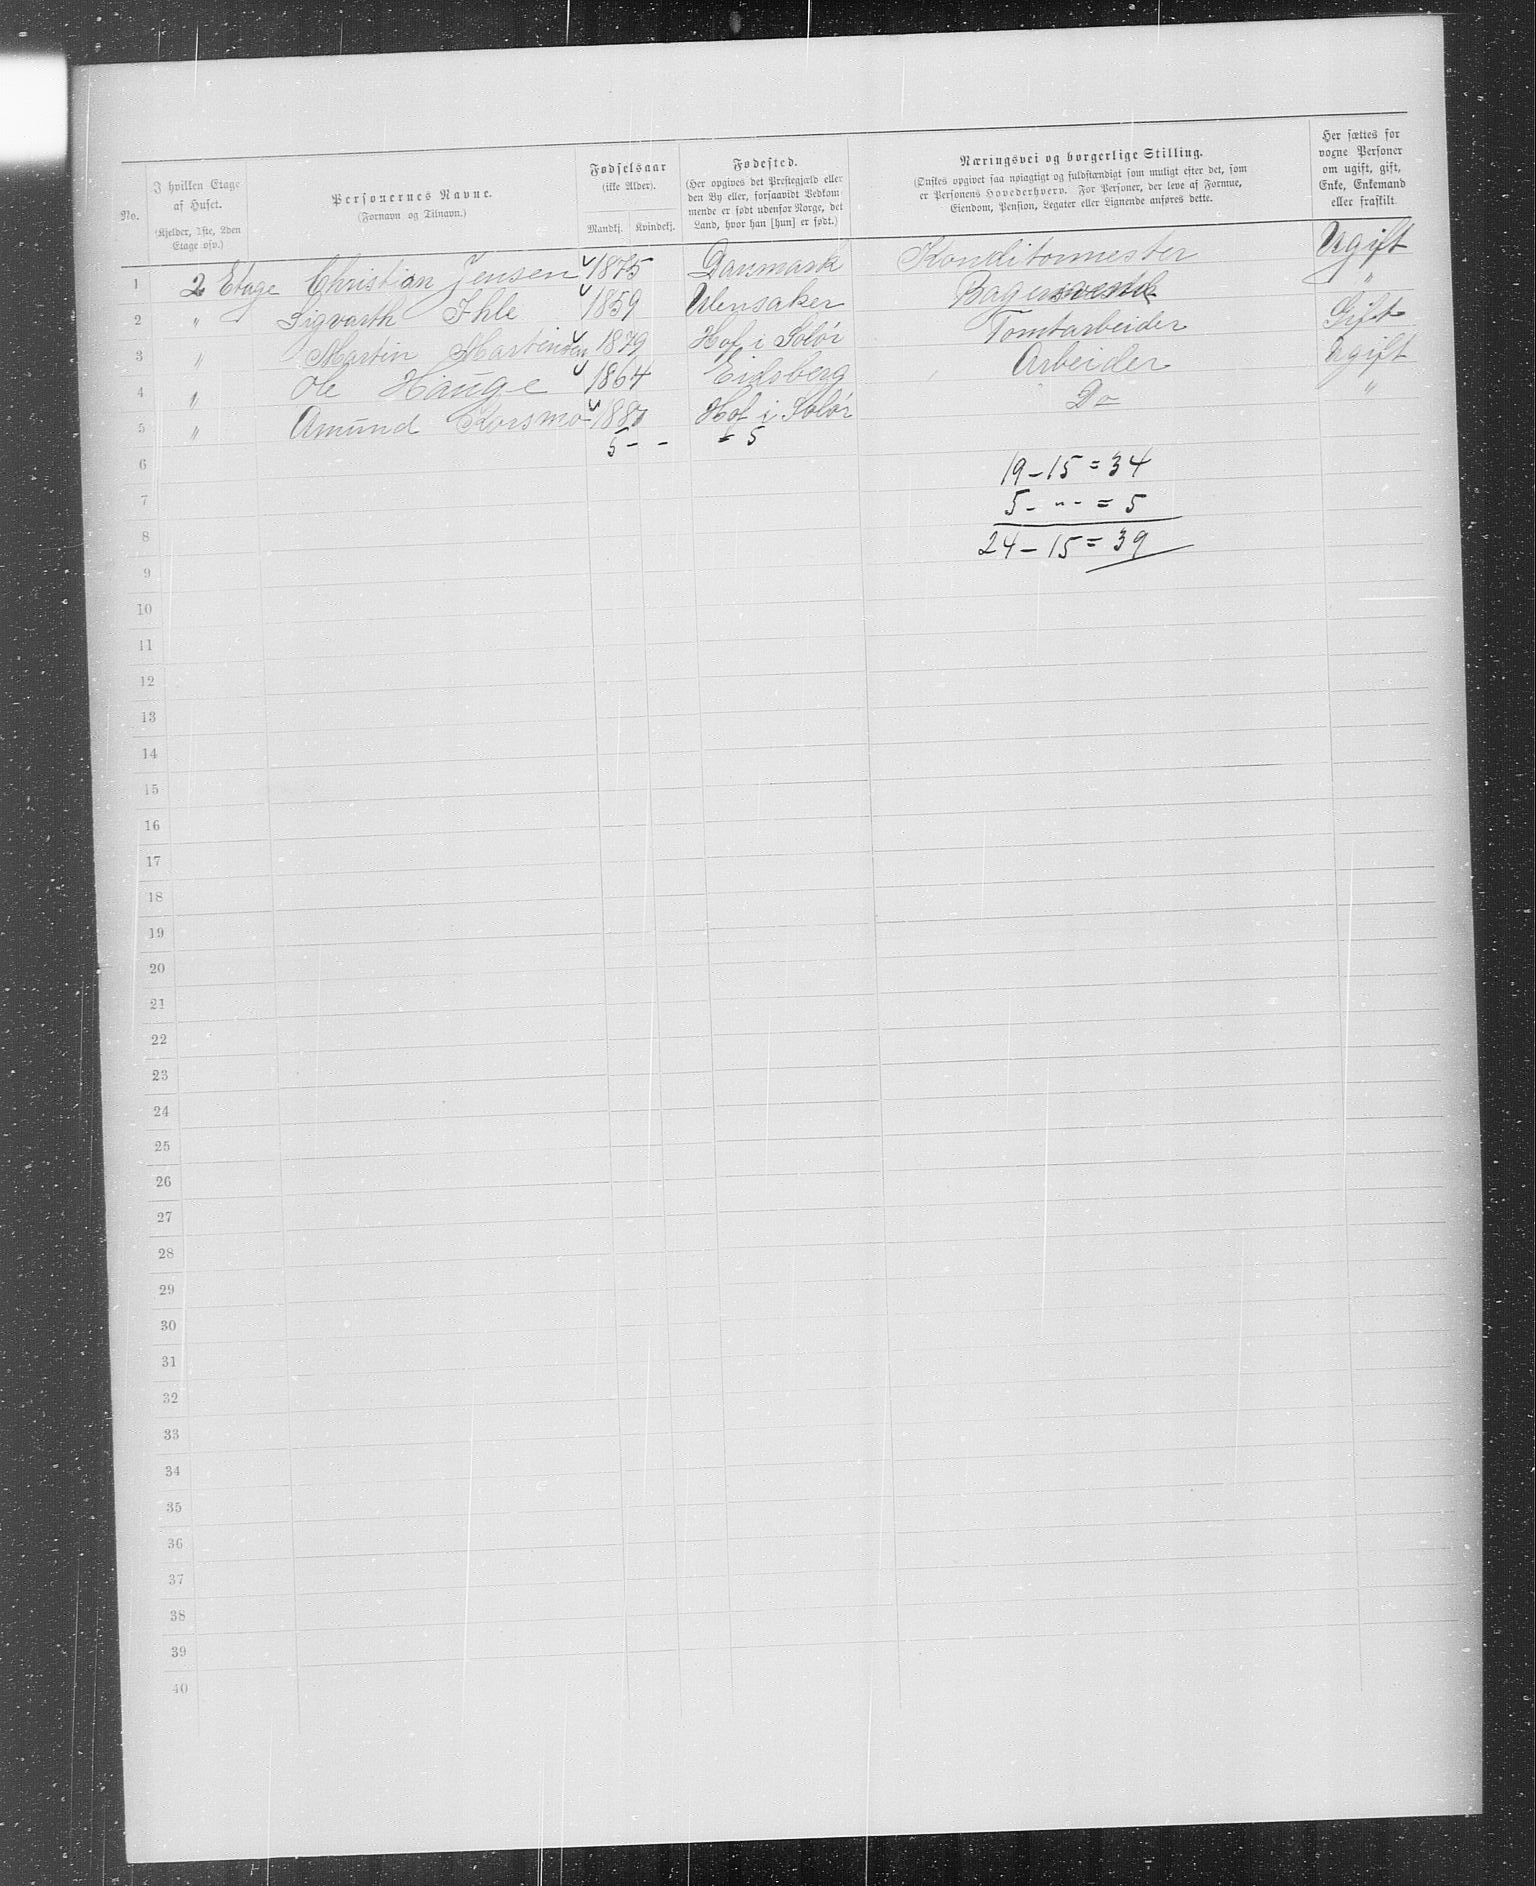 No.
I hvilken Etage af Huset.
(Kjelder, 1ste, 2den Etage osv.)
Personernes Navne.
(Fornavn og Tilnavn.)
Fødselsaar
(ikke Alder).
Mandkj. Kvindekj.
Fødested.
(Her opgives det Prestegjæld eller
den By eller, forsaavidt Vedkom-
mende er født udenfor Norge, det
Land, hvor han [hun] er født.)
Næringsvei og borgerlige Stilling.
(Ønskes opgivet saa nøiagtigt og fuldstændigt som muligt efter det, som
er Personens Hovederhverv. For Personer, der leve af Formue,
Eiendom, Pension, Legater eller Lignende anføres dette.
Her sættes for
voxne Personer
om ugift, gift,
Enke, Enkemand
eller fraskilt.
1 2 Etage Christian Jensen 1875 Danmark Konditormester Ugift
2 " Sigvarth Ihle 1859 Ulensaker Bagersvend "
3 " Martin Martinsen 1879 Hof i Solør Tomtarbeider Gift
4 " Ole Hauge 1864 Eidsberg Arbeider Ugift
5 " Amund Korsmo 188 Hof i Solør Do "
5 - - = 5
6
19 - 15 = 34
7
5 - -- = 5
8
24 - 15 = 39
9
10
11
12
13
14
15
16
17
18
19
20
21
22
23
24
25
26
27
28
29
30
31
32
33
34
35
36
37
38
39
40